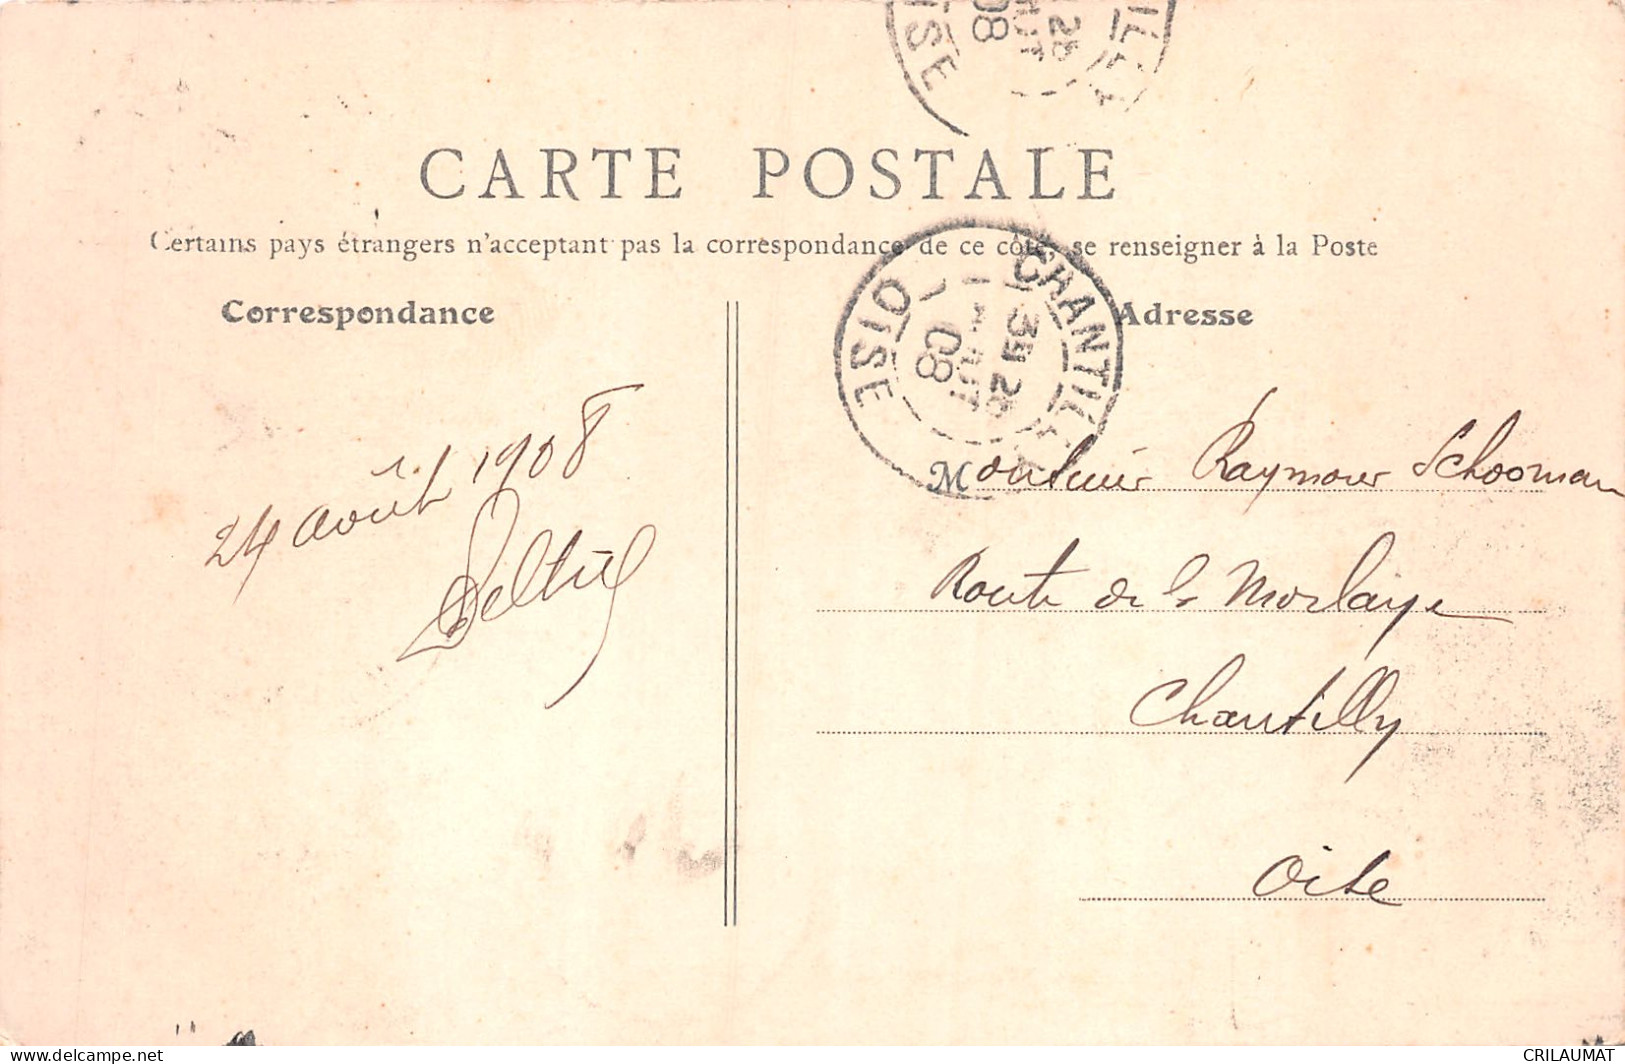 CARTE POSTALE
Certains pays étrangers n'acceptant pas la correspondance de ce côté, se renseigner à la Poste
Correspondance
Adresse
CHANTILLY
OISE
08
24 août 1908
Monsieur Raymond Schooman
Route de la Morlaye
Chantilly
Oise
delcampe.net
CRILAUMAT